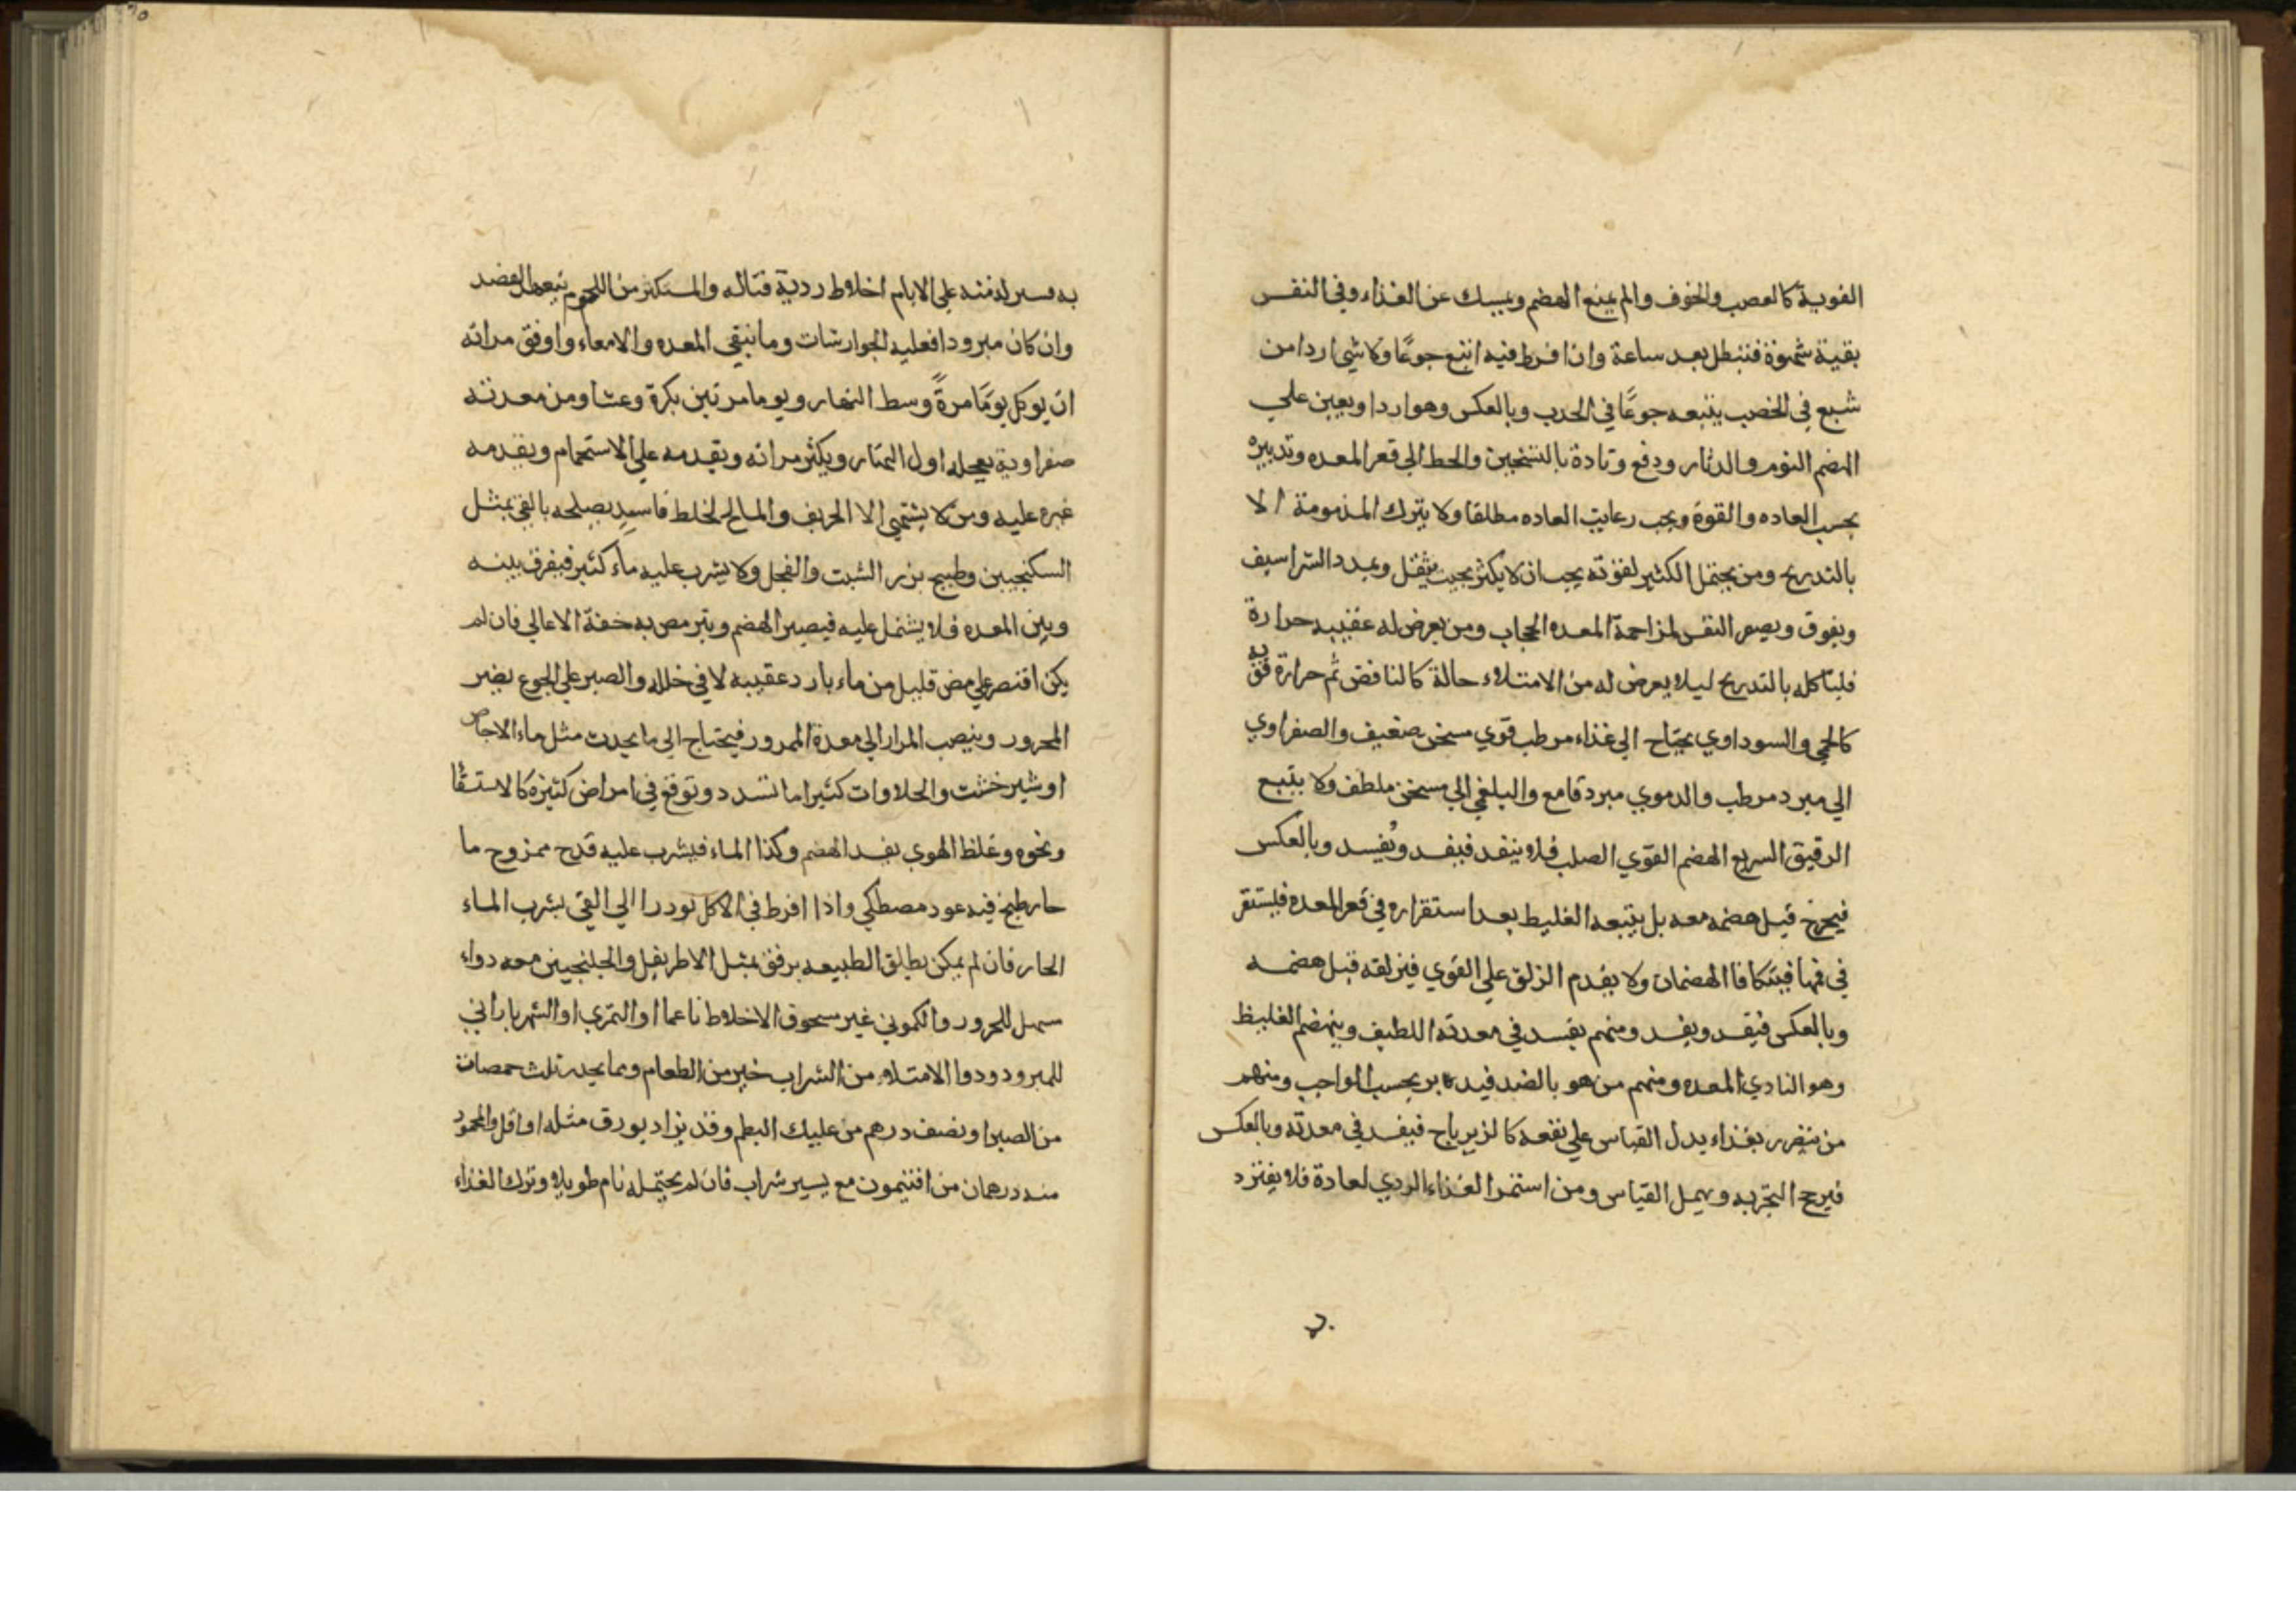 القوية كالغضب والخوف والم يمنع الهضم ويمسك عن الغذاء وفي النفس
بقية شهوة فتبطل بعد ساعة وان افرط فيه اتبع جوعًا ولا شي اردا من
شبع في الخصب يتبعه جوعًا في الجدب وبالعكس وهو اردا ويعين علي
الهضم النوم والدثار ودفع وتادة بالتسخين والحط الي قعر المعده وتدبيره
بحسب العاده والقوة ويجب رعاية العاده مطلقا ولا يترك المذمومة الا
بالتدريج ومن يحتمل الكثير لقوته يجب ان لا يكثر بحيث يثقل ويمدد الشراسيف
ويفوق ويصعر النفس لمزاحمة المعده الحجاب ومن يعرض له عقيبه حرارة
فلياكله بالتدريج ليلا يعرض له من الامتلاء حالة كالنافض ثم حرارة قوية
كالحمي والسوداوي يحتاح الي غذاء مرطب قوي مسخن ضعيف والصفراوي
الي مبرد مرطب والدموي مبرد قامع والبلغمي الي مسخن ملطف ولا يتبع
الرقيق السريع الهضم القوي الصلب فلا ينفد فيفسد ويُفسد وبالعكس
فيخرج قبل هضمه معه بل يتبعه الغليظ بعد استقراره في قعر المعده فيستقر
في فمها فيتكافا الهضمان ولا يقدم الزلق علي القوي فيزلقه قبل هضمه
وبالعكس فيفسد ويفسد ومنهم يفسد في معدته اللطيف وينهضم الغليظ
وهو الناري المعده ومنهم من هو بالضد فيدبر بحسب الواجب ومنهم
من يتضرر بغذاء يدل القياس علي نفعه كالزيرباج فيفسد في معدته وبالعكس
فيرجح التجربه ويهمل القياس ومن استمرا الغذاء الردي لعادة فلا يغترد
به فسيولد منه علي الايام اخلاط ردية قتاله والمستكثر من اللحوم يتعهد الفصد
وان كان مبرودا فعليه الجوارشات وما ينقي المعده والامعاء واوفق مراته
ان يوكل يومًا مرةً وسط النهار ويوما مرتين بكرة وعشا ومن معدته
صفراوية يعجله اول النهار ويكثر مراته ويقدمه علي الاستحمام ويقدمه
غيره عليه ومن لا يشتهي الا الحريف والمالح لخلط فاسد يصلحه بالقئ بمثل
السكنجبين وطبيخ بزر الشبت والفجل ولا يشرب عليه ماء كثير فيفرق بينه
وبين المعده فلا يشتمل عليه فيصير الهضم ويتربص به خفة الاعالي فان لم
يكن اقتصر علي مص قليل من ماء بارد عقيبه لا في خلاله والصبر علي الجوع يضر
المحرور وينصب المرار الي معدة الممرور فيحتاج الي ما يحدث مثل ماء الاجاص
او شيرخشت والحلاوات كثيرا ما تسدد وتوقع في امراض كثيرة كالاستسقا
ونحوه وغلظ الهوي يفسد الهضم وكذا الماء فيشرب عليه قدح ممزوج ما
حار طبخ فيه عود مصطكي واذا افرط في الاكل بودر الي القئ بشرب الماء
الحار فان لم يمكن يطلق الطبيعه برفق بمثل الاطريفل والجلنجبين معه دواء
مسهل للمحرور والكموني غير مسحوق الاخلاط ناعما او التمري او الشهرياراني
للمبرود ودوا الامتلاء من الشراب خير من الطعام ومما يحدر ثلث حمصات
من الصبر او نصف درهم من علك البطم وقد يزاد بورق مثله او اقل والمحمود
منه درهمان من افتيمون مع يسير شراب فان لم يحتمله نام طويلا وترك الغذاء